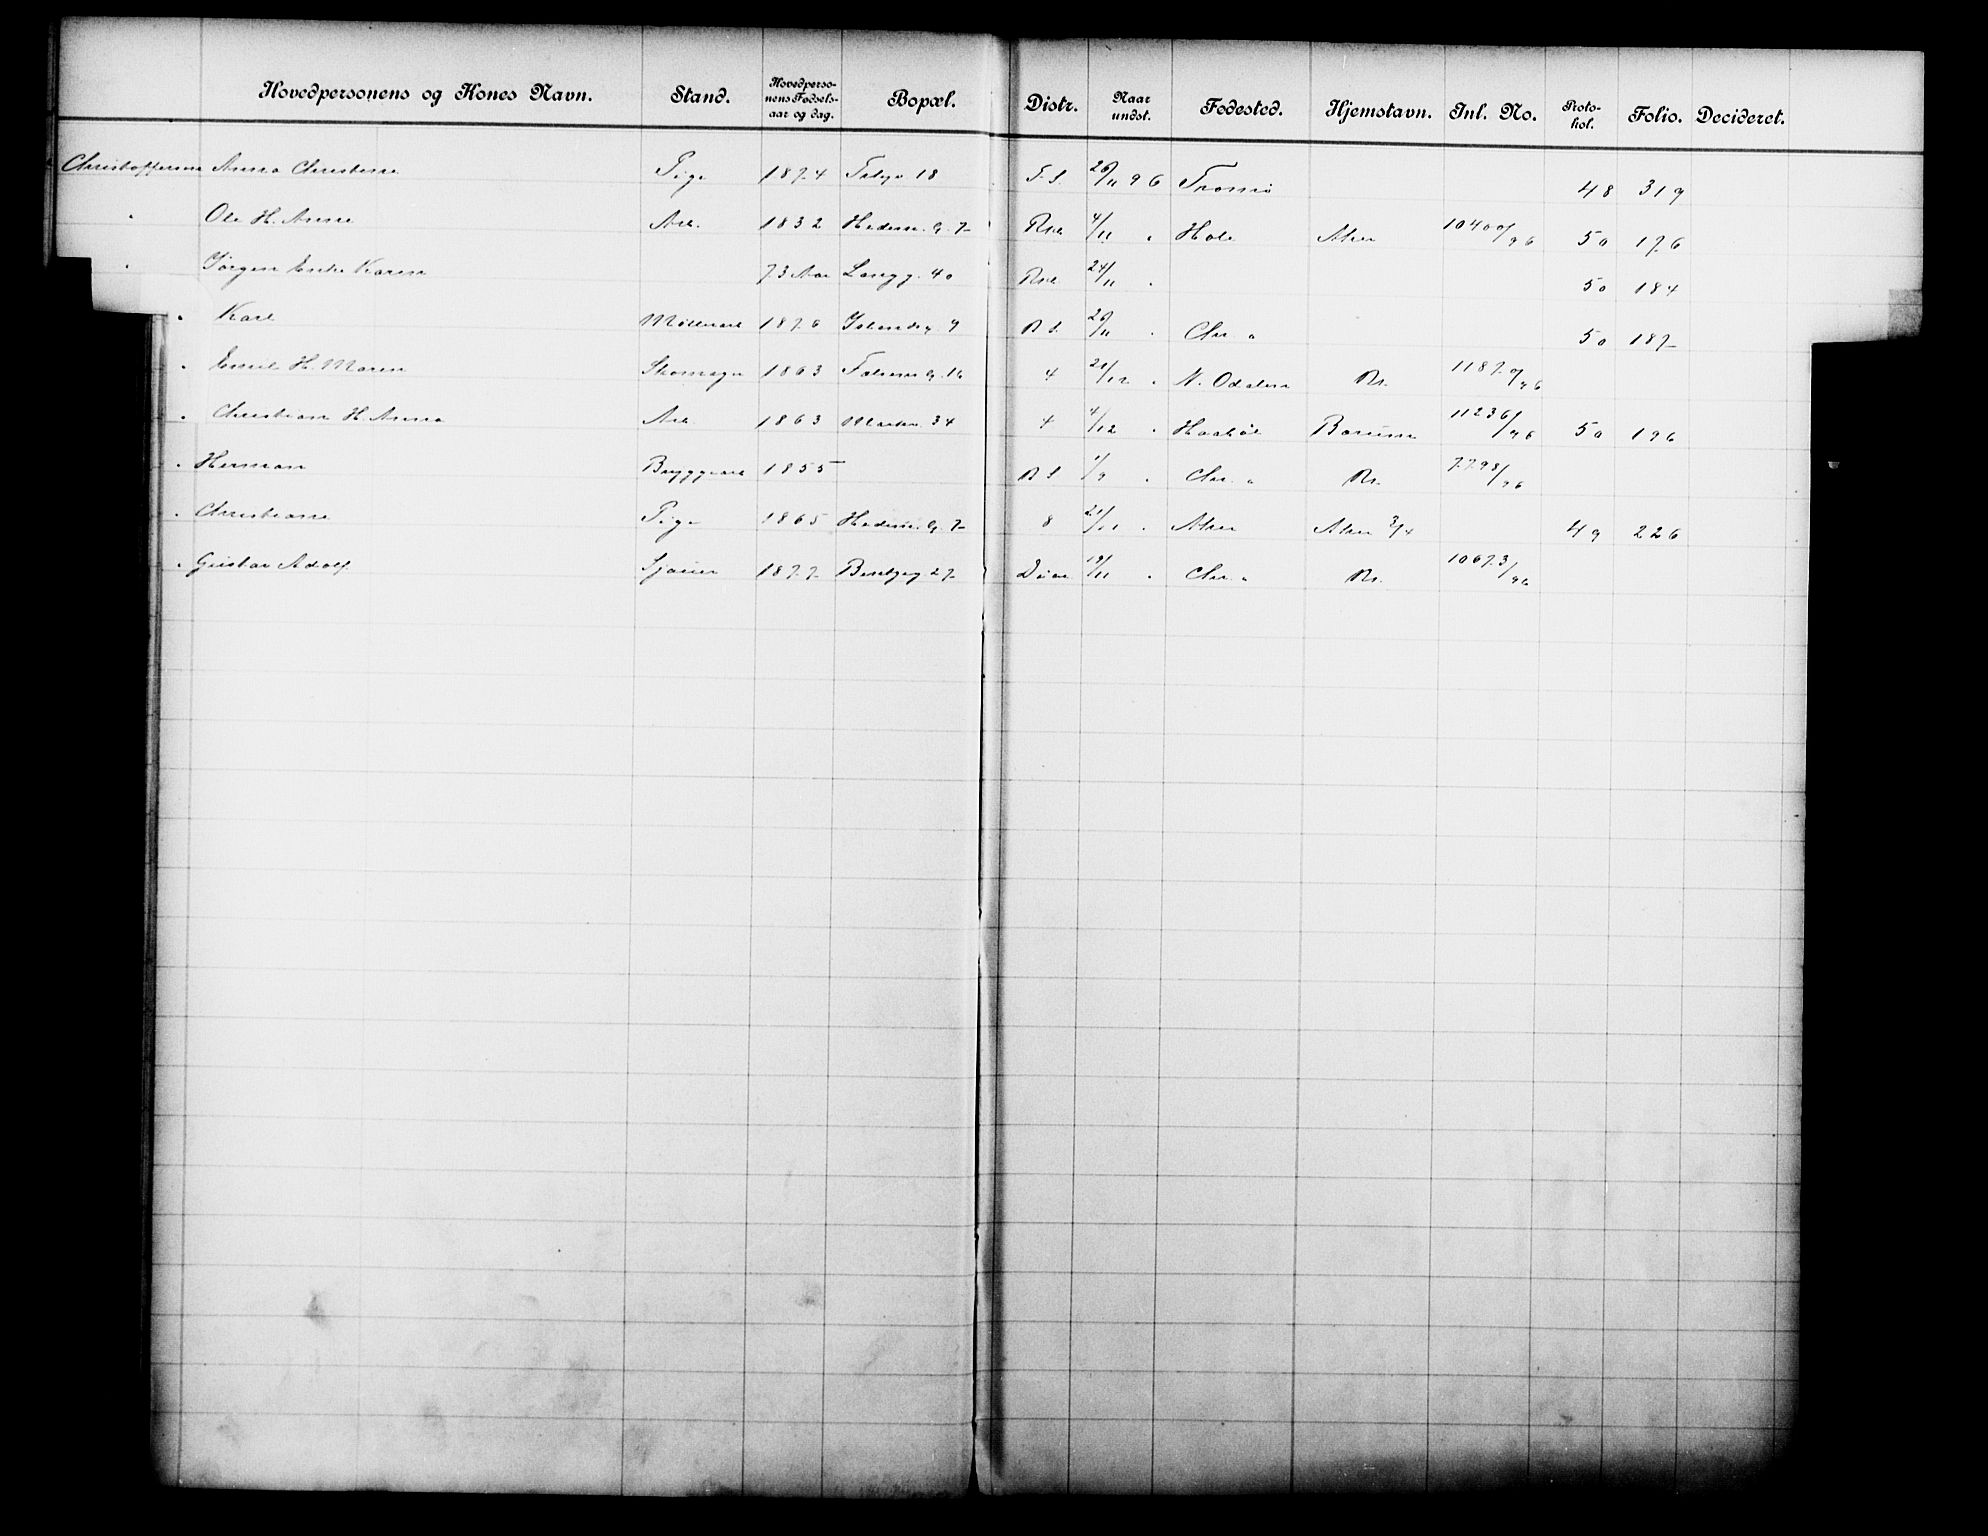 Hovedpersonens og Kones Navn. Stand. Hovedperso-nens Fødsels-aar og dag. Bopæl. Distr. Naar undst. Fødested. Hjemstavn. Inl. No. Proto-kol. Folio. Decideret.
Christoffersen Anna Christene Pige 1874 18 F. S. 26/11 96 Tromsø 48 319
" Ole H. Anne Arb. 1832 Hedem. G. 7 Rsk 4/11 " Hole Aker 10400/96 50 176
" Jørgen Enke Karen 73 Aar Langg. 40 Rsk 24/11 " 50 184
" Karl Møllearb 1876 Islandsg. 9 B S. 26/11 " Chr. a 50 187
" Emil H. Maren Skomager 1863 G. 16 4 21/12 " N. Odalen Br. 11870/96
" Christian H. Anna Arb 1863 Markv. 34 4 4/12 " Haabøl Bærum 11236/96 50 196
" Herman Bryggearb 1855 B S 1/9 " Chr. a Br. 7798/96
" Christiane Pige 1865 Hedem. G. 7 8 21/11 " Aker Aker 3/4 49 226
" Gustav Adolf Sjauer 1877 27 19/11 " Chr. a Br. 10673/96